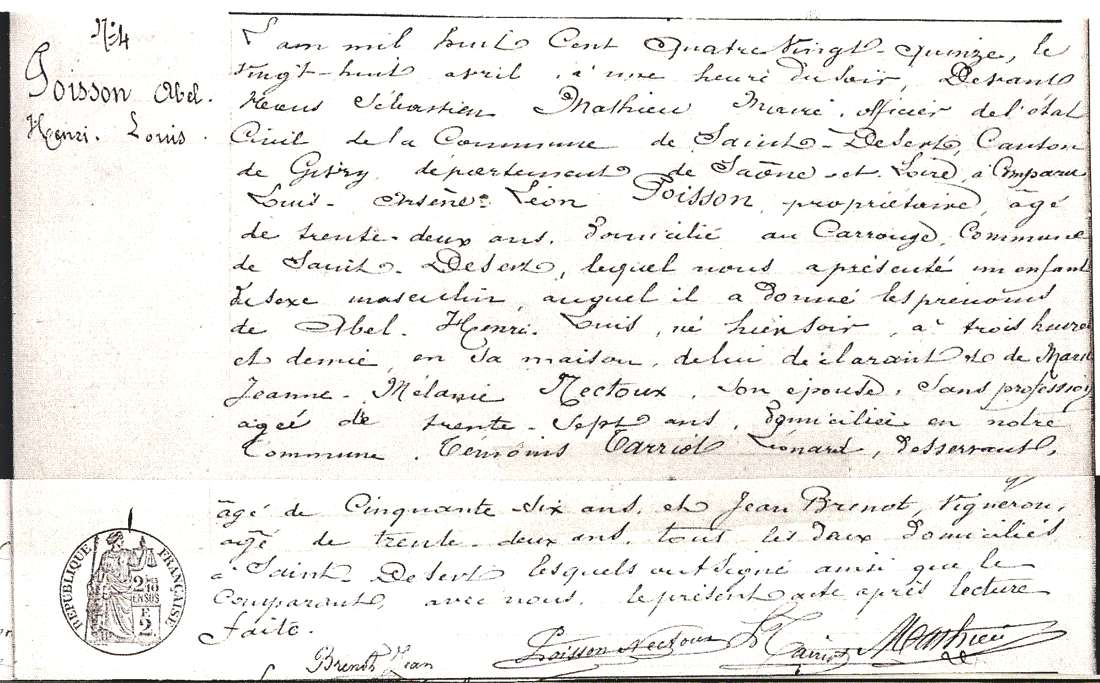 N° 4
Poisson Abel.
Henri. Louis.
L'an mil huit Cent quatre vingt-quinze, le
vingt-huit avril, à une heure du soir, Devant
Nous Sébastien Mathieu Maire, officier de l'état
Civil de la Commune de Saint-Desert, Canton
de Givry, département de Saône-et-Loire, a Comparu
Louis-Arsène-Léon Poisson, propriétaire, âgé
de trente-deux ans, Domicilié au Carrouge, Commune
de Saint-Desert, lequel nous a présenté un enfant
du sexe masculin auquel il a donné les prénoms
de Abel-Henri-Louis, né hier soir, à trois heures
et demie, en sa maison, de lui déclarant et de Marie
Jeanne-Mélanie Nectoux, son épouse, sans profession
agée de trente-sept ans, Domiciliée en notre
Commune. Témoins Carriot Léonard, desservant,
âgé de Cinquante-six ans, et Jean Brenot, Vigneron,
agé de trente-deux ans, tous les deux domiciliés
à Saint-Desert lesquels ont signé ainsi que le
Comparant, avec nous, le présent acte après lecture
faite.
RÉPUBLIQUE FRANÇAISE
2 10
EN SUS
F
2
Brenot Jean Poisson Nectoux Carriot Mathieu